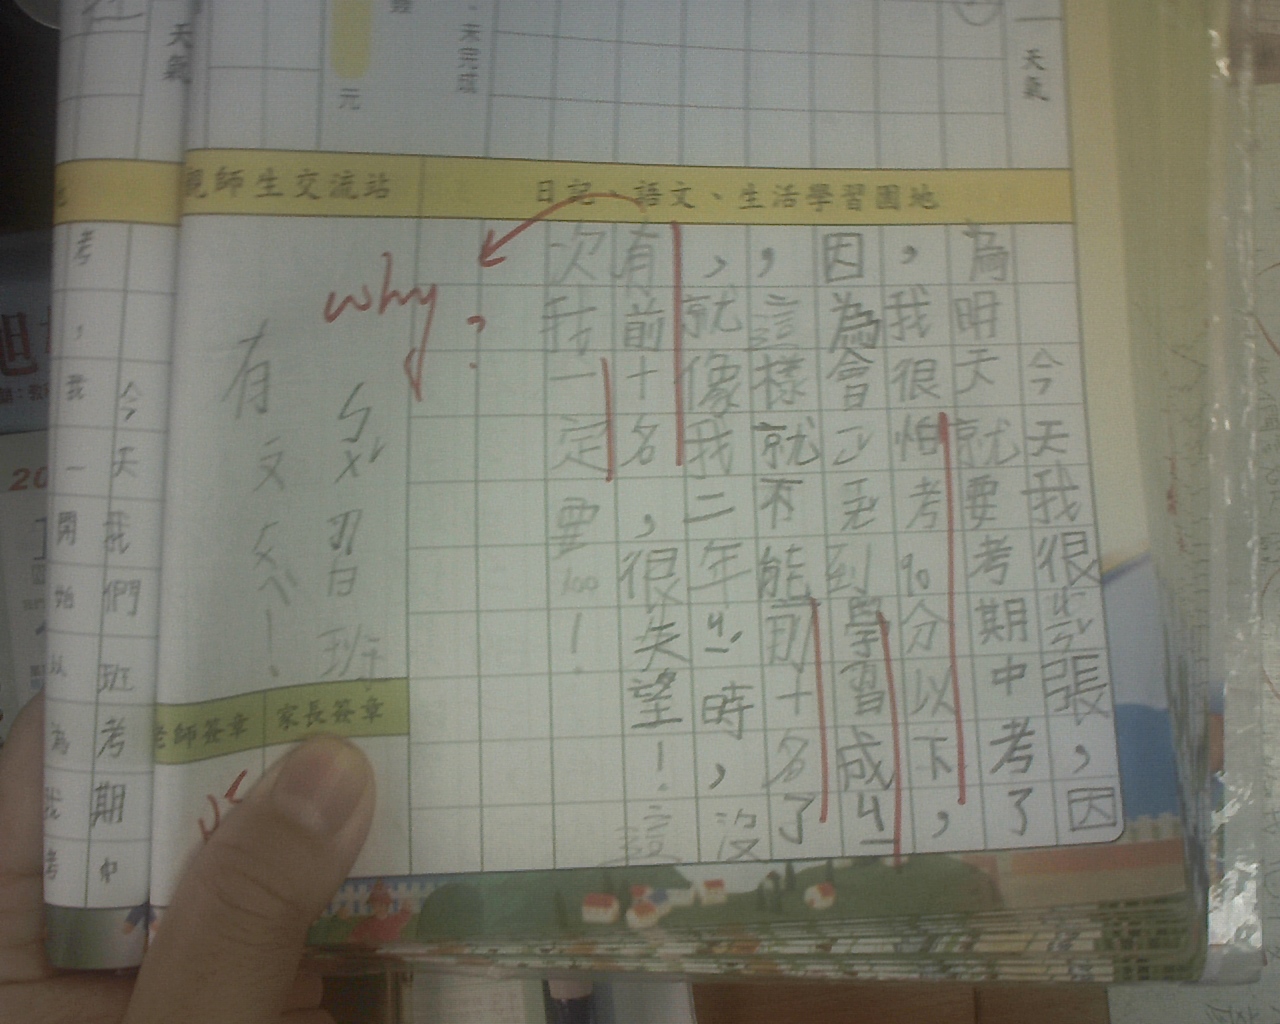 天氣
未完成
元
天氣
日記、語文、生活學習園地
親師生交流站
今天我很ㄐㄧㄣˇ張，因
為明天就要考期中考了
，我很怕考90分以下，
因為會ㄩˇ到學習成ㄐㄧ
，這樣就不能前十名了
，就像我二年ㄐㄧˊ時，沒
有前十名，很失望！這
次我一定要100！
why?
ㄅㄨˇ習班
有
老師簽章
家長簽章
今天我們班考期中
考，我一開始以為我考
20